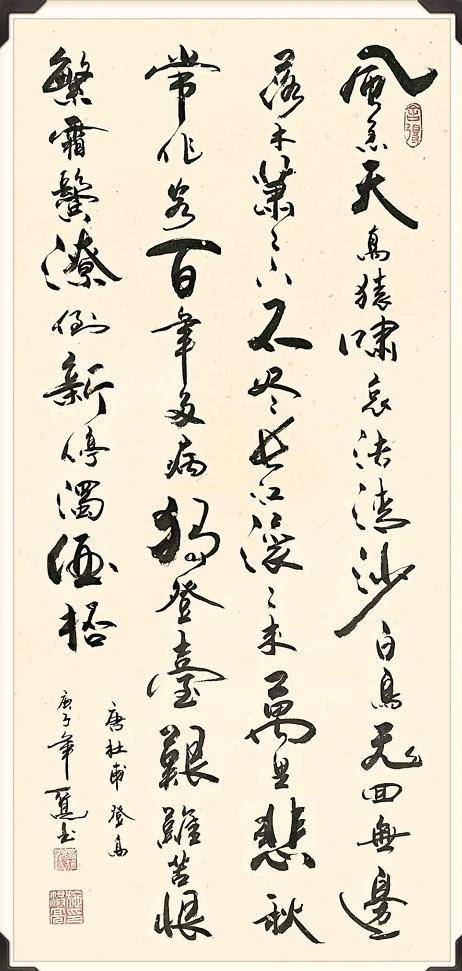 風急天高猿嘯哀渚清沙白鳥飛回無邊
落木蕭々下不尽長江滾々来萬里悲秋
常作客百年多病獨登臺艱難苦恨
繁霜鬢潦倒新停濁酒桮
唐杜甫登高
庚子年书